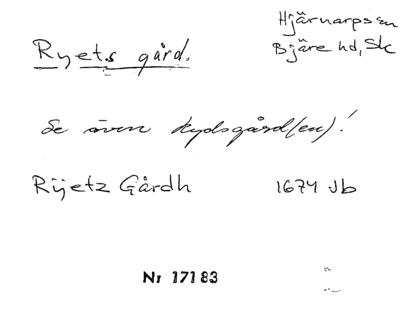 Ryets gård.
Hjärnarps sn
Bjäre hd, Sk
Se även Rydsgård(en)!
Rÿetz Gårdh 1674 Jb
Nr 17183